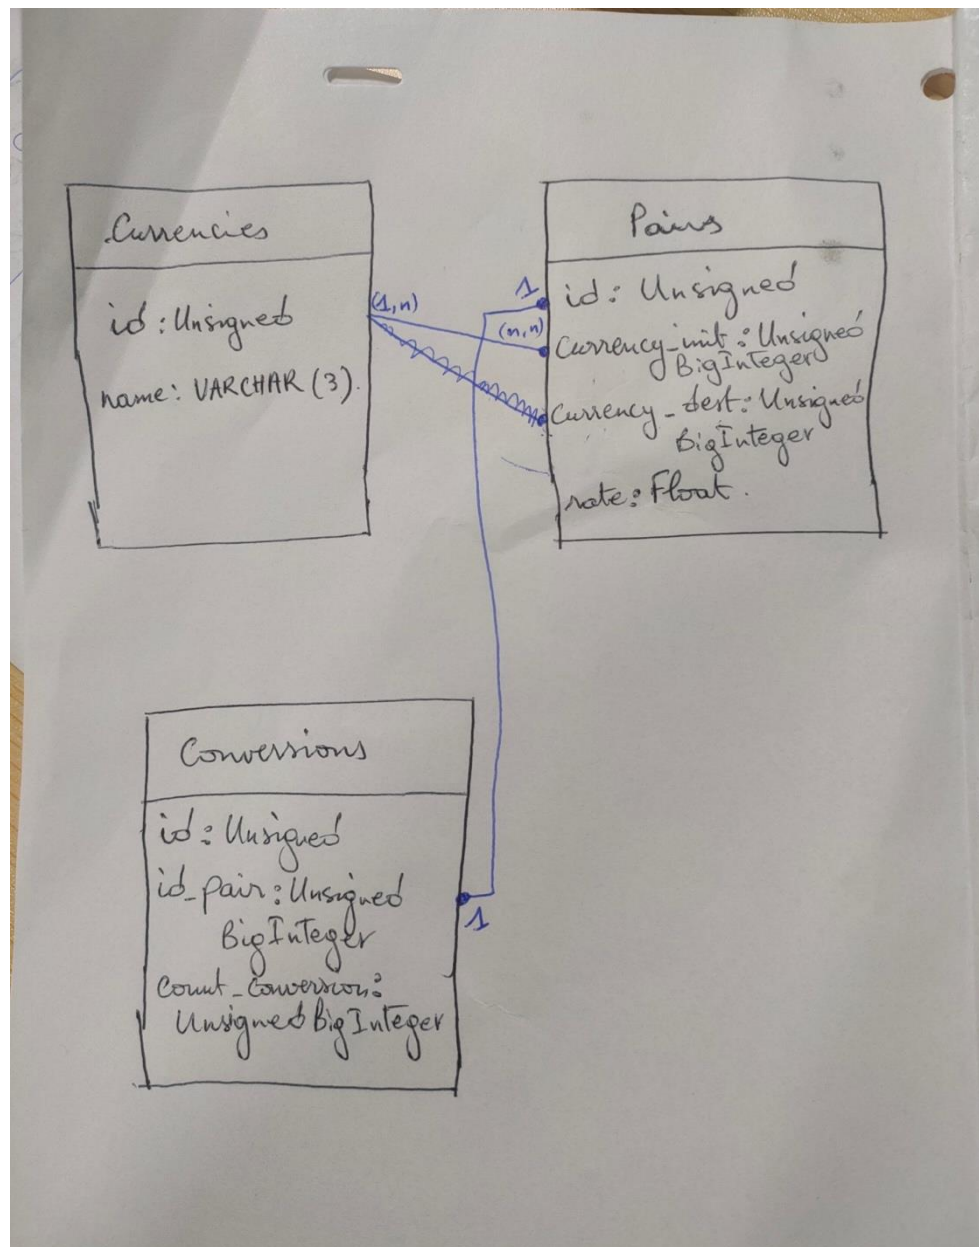 Currencies
id : Unsigned
name : VARCHAR (3).
(1,n)
Pairs
1
id : Unsigned
(n,n)
Currency_init : Unsigned
BigInteger
Currency_dest : Unsigned
BigInteger
rate : Float.
Conversions
id : Unsigned
id_pair : Unsigned
BigInteger
1
Count_Conversion :
Unsigned BigInteger